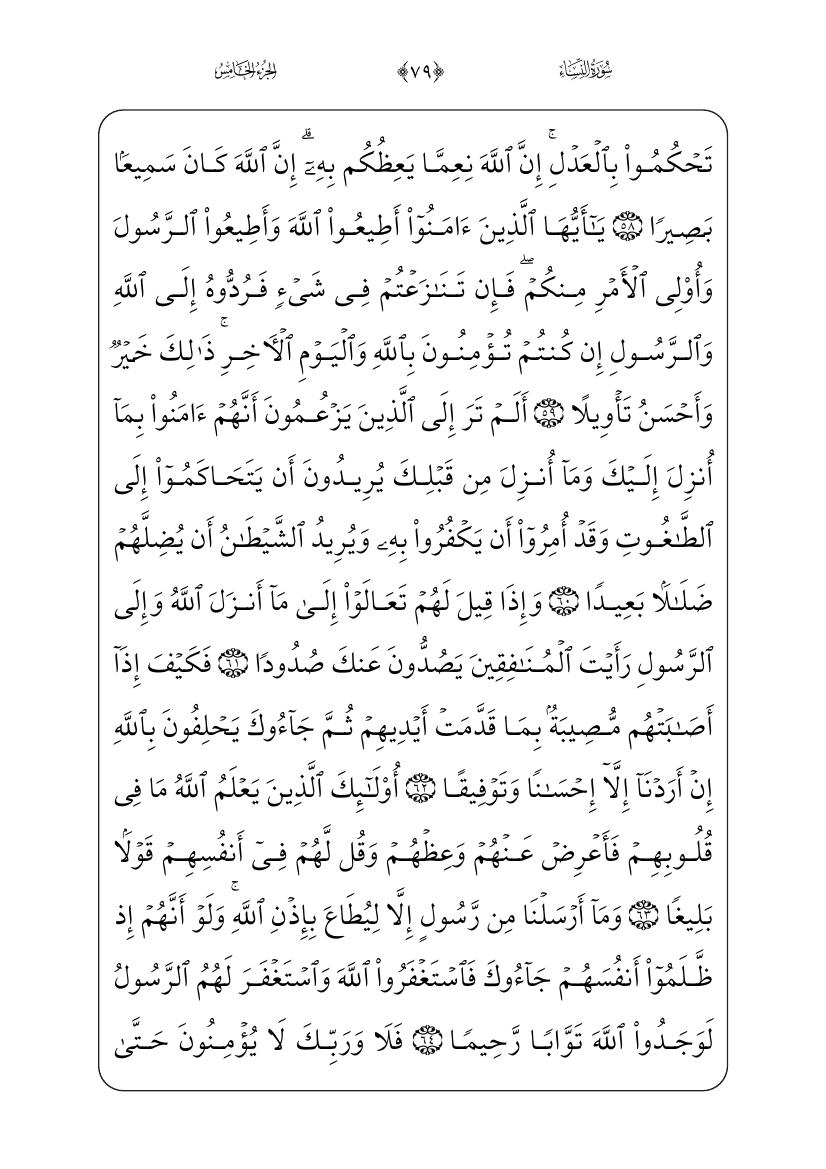 سُورَةُ النِّسَاءِ ﴿٧٩﴾ الجُزْءُ الخَامِسُ
تَحۡكُمُواْ بِٱلۡعَدۡلِۚ إِنَّ ٱللَّهَ نِعِمَّا يَعِظُكُم بِهِۦٓۗ إِنَّ ٱللَّهَ كَانَ سَمِيعَۢا
بَصِيرٗا ٥٨ يَٰٓأَيُّهَا ٱلَّذِينَ ءَامَنُوٓاْ أَطِيعُواْ ٱللَّهَ وَأَطِيعُواْ ٱلرَّسُولَ
وَأُوْلِي ٱلۡأَمۡرِ مِنكُمۡۖ فَإِن تَنَٰزَعۡتُمۡ فِي شَيۡءٖ فَرُدُّوهُ إِلَى ٱللَّهِ
وَٱلرَّسُولِ إِن كُنتُمۡ تُؤۡمِنُونَ بِٱللَّهِ وَٱلۡيَوۡمِ ٱلۡأٓخِرِۚ ذَٰلِكَ خَيۡرٞ
وَأَحۡسَنُ تَأۡوِيلًا ٥٩ أَلَمۡ تَرَ إِلَى ٱلَّذِينَ يَزۡعُمُونَ أَنَّهُمۡ ءَامَنُواْ بِمَآ
أُنزِلَ إِلَيۡكَ وَمَآ أُنزِلَ مِن قَبۡلِكَ يُرِيدُونَ أَن يَتَحَاكَمُوٓاْ إِلَى
ٱلطَّٰغُوتِ وَقَدۡ أُمِرُوٓاْ أَن يَكۡفُرُواْ بِهِۦ وَيُرِيدُ ٱلشَّيۡطَٰنُ أَن يُضِلَّهُمۡ
ضَلَٰلَۢا بَعِيدٗا ٦٠ وَإِذَا قِيلَ لَهُمۡ تَعَالَوۡاْ إِلَىٰ مَآ أَنزَلَ ٱللَّهُ وَإِلَى
ٱلرَّسُولِ رَأَيۡتَ ٱلۡمُنَٰفِقِينَ يَصُدُّونَ عَنكَ صُدُودٗا ٦١ فَكَيۡفَ إِذَآ
أَصَٰبَتۡهُم مُّصِيبَةُۢ بِمَا قَدَّمَتۡ أَيۡدِيهِمۡ ثُمَّ جَآءُوكَ يَحۡلِفُونَ بِٱللَّهِ
إِنۡ أَرَدۡنَآ إِلَّآ إِحۡسَٰنٗا وَتَوۡفِيقًا ٦٢ أُوْلَٰٓئِكَ ٱلَّذِينَ يَعۡلَمُ ٱللَّهُ مَا فِي
قُلُوبِهِمۡ فَأَعۡرِضۡ عَنۡهُمۡ وَعِظۡهُمۡ وَقُل لَّهُمۡ فِيٓ أَنفُسِهِمۡ قَوۡلَۢا
بَلِيغٗا ٦٣ وَمَآ أَرۡسَلۡنَا مِن رَّسُولٍ إِلَّا لِيُطَاعَ بِإِذۡنِ ٱللَّهِۚ وَلَوۡ أَنَّهُمۡ إِذ
ظَّلَمُوٓاْ أَنفُسَهُمۡ جَآءُوكَ فَٱسۡتَغۡفَرُواْ ٱللَّهَ وَٱسۡتَغۡفَرَ لَهُمُ ٱلرَّسُولُ
لَوَجَدُواْ ٱللَّهَ تَوَّابٗا رَّحِيمٗا ٦٤ فَلَا وَرَبِّكَ لَا يُؤۡمِنُونَ حَتَّىٰ